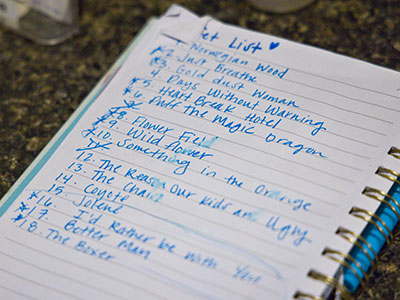 et List ♥
Norwegian Wood
*2. Just Breathe
*3. Gold dust Woman
4. Days Without Warning
*5. Heart Break Hotel
*6. Puff The Magic Dragon
*8. Flower Fiel
9. Wild flower
*10. Something in the Orange
12. The Reason Our kids are Ugly
13. The Chain
14. Coyote
15. Jolene
*16. I'd Rather be With You
*17. Better Man
18. The Boxer